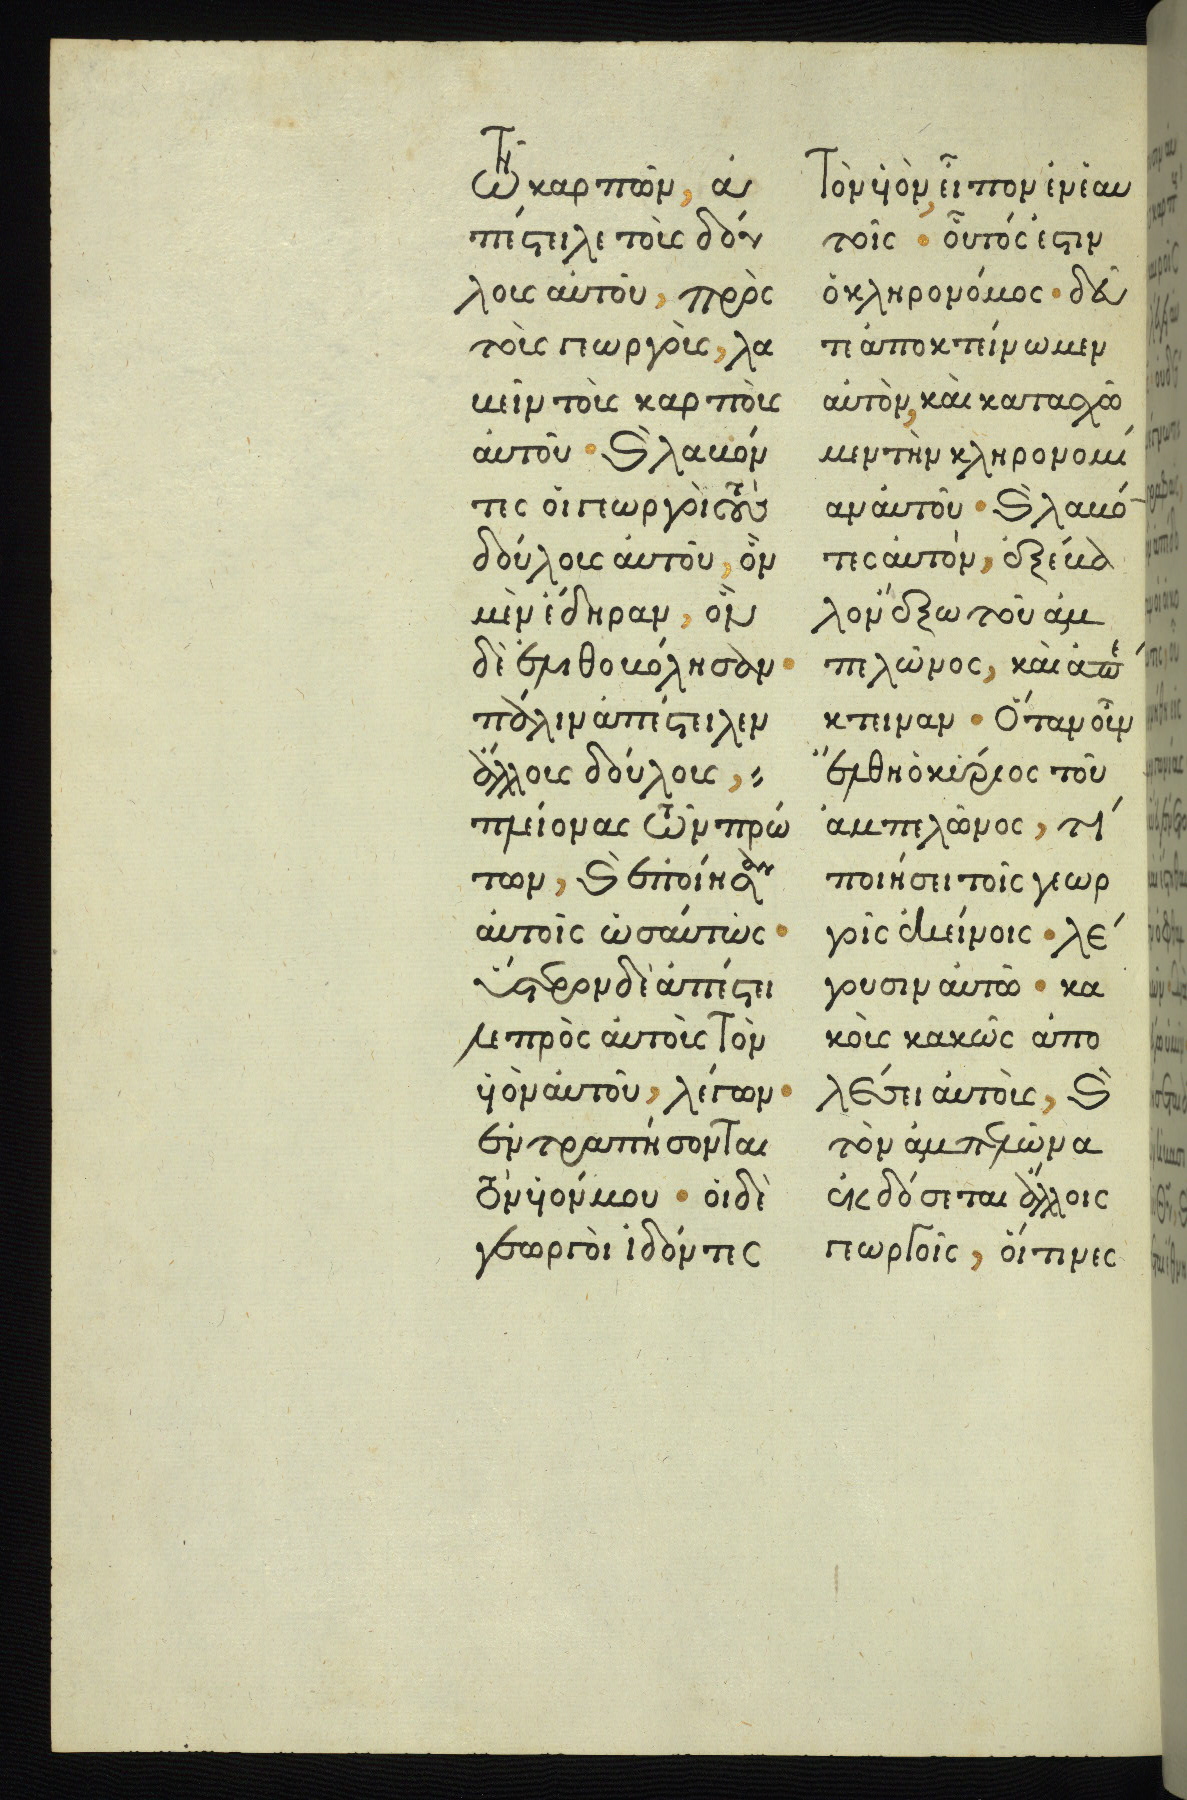 τῶν καρπῶν, ἀ
πέστειλε τοὺς δού
λους αὐτοῦ, πρὸς
τοὺς γεωργοὺς, λα
βεῖν τοὺς καρποὺς
αὐτοῦ· καὶ λαβόν
τες οἱ γεωργοὶ τοὺς
δούλους αὐτοῦ, ὃν
μὲν ἔδηραν, ὃν
δὲ ἐλιθοβόλησαν·
πάλιν ἀπέστειλεν
ἄλλους δούλους,
πλείονας τῶν πρώ
των, καὶ ἐποίησαν
αὐτοῖς ὡσαύτως·
ὕστερον δὲ ἀπέστει
λε πρὸς αὐτοὺς τὸν
υἱὸν αὐτοῦ, λέγων·
ἐντραπήσονται
τὸν υἱόν μου· οἱ δὲ
γεωργοὶ ἰδόντες
τὸν υἱὸν, εἶπον ἐν ἑαυ
τοῖς· οὗτός ἐστιν
ὁ κληρονόμος· δεῦ
τε ἀποκτείνωμεν
αὐτὸν, καὶ κατασχῶ
μεν τὴν κληρονομί
αν αὐτοῦ· καὶ λαβό
τες αὐτὸν, ἐξέβα
λον ἔξω τοῦ ἀμ
πελῶνος, καὶ ἀπέ
κτειναν· Ὅταν οὖν
ἔλθη ὁ κύριος τοῦ
ἀμπελῶνος, τί
ποιήσει τοῖς γεωρ
γοῖς ἐκείνοις· λέ
γουσιν αὐτῶ· κα
κοὺς κακῶς ἀπο
λέσει αὐτοὺς, καὶ
τὸν ἀμπελῶνα
ἐκδόσεται ἄλλοις
γεωργοῖς, οἵτινες